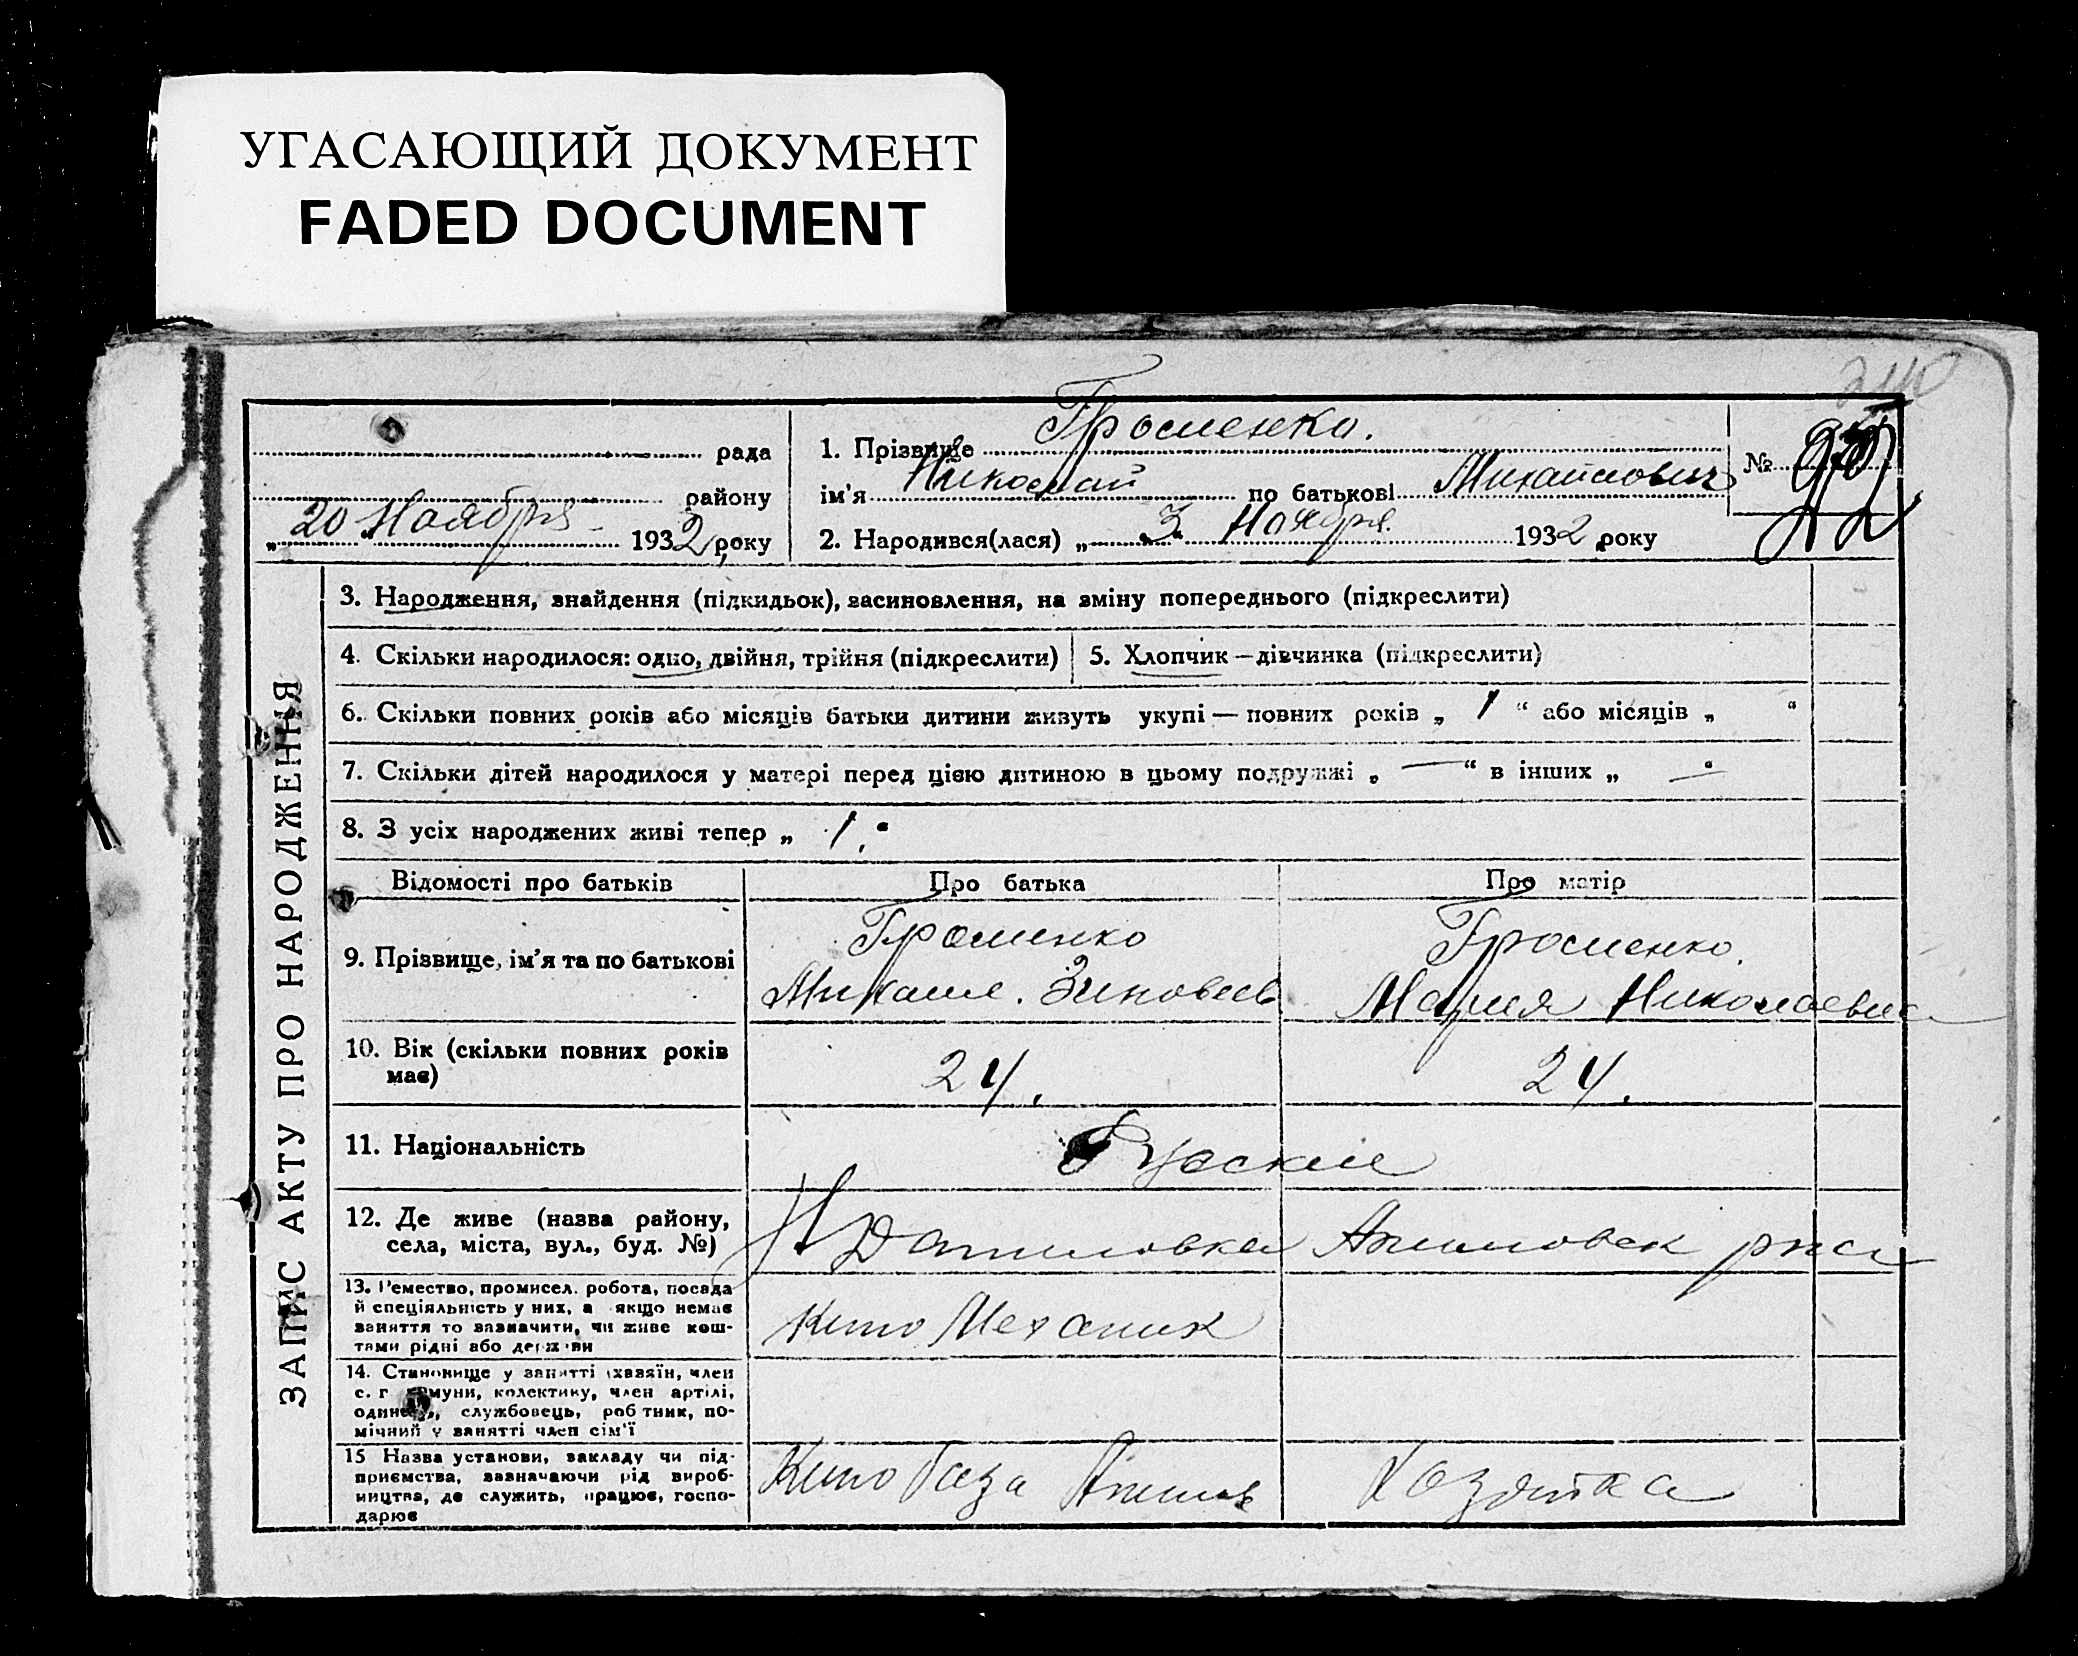 УГАСАЮЩИЙ ДОКУМЕНТ
FADED DOCUMENT
240
рада
району
„20" Ноября 1932 року
1. Прізвище Громенко.
ім'я Николай по батькові Михайлович
2. Народився(лася) „3" Ноября 1932 року
№
ЗАПИС АКТУ ПРО НАРОДЖЕННЯ
3. Народження, знайдення (підкидьок), засиновлення, на зміну попереднього (підкреслити)
4. Скільки народилося: одно, двійня, трійня (підкреслити)
5. Хлопчик — дівчинка (підкреслити)
6. Скільки повних років або місяців батьки дитини живуть укупі — повних років „ 1 “ або місяців „ “
7. Скільки дітей народилося у матері перед цією дитиною в цьому подружжі „ — “ в інших „ — “
8. З усіх народжених живі тепер „ 1. “
Відомості про батьків
Про батька
Про матір
9. Прізвище, ім'я та по батькові
Громенко
Михаил. Зиновеев
Громенко.
Мария Николаевна
10. Вік (скільки повних років
має)
24.
24.
11. Національність
Руские
12. Де живе (назва району,
села, міста, вул., буд. №)
Н Даниловка
13. Ремество, промисел. робота, посада
й спеціяльність у них, а якщо немає
заняття то зазначити, чи живе кош-
тами рідні або держави
Кино Механик
14. Становище у занятті (хазяїн, член
с. г. комуни, колективу, член артілі,
одинець, службовець, робітник, по-
мічний у занятті член сім'ї
15 Назва установи, закладу чи під-
приємства, зазначаючи рід вироб-
ництва, де служить, працює, госпо-
дарює
Кино база
Хозяйка